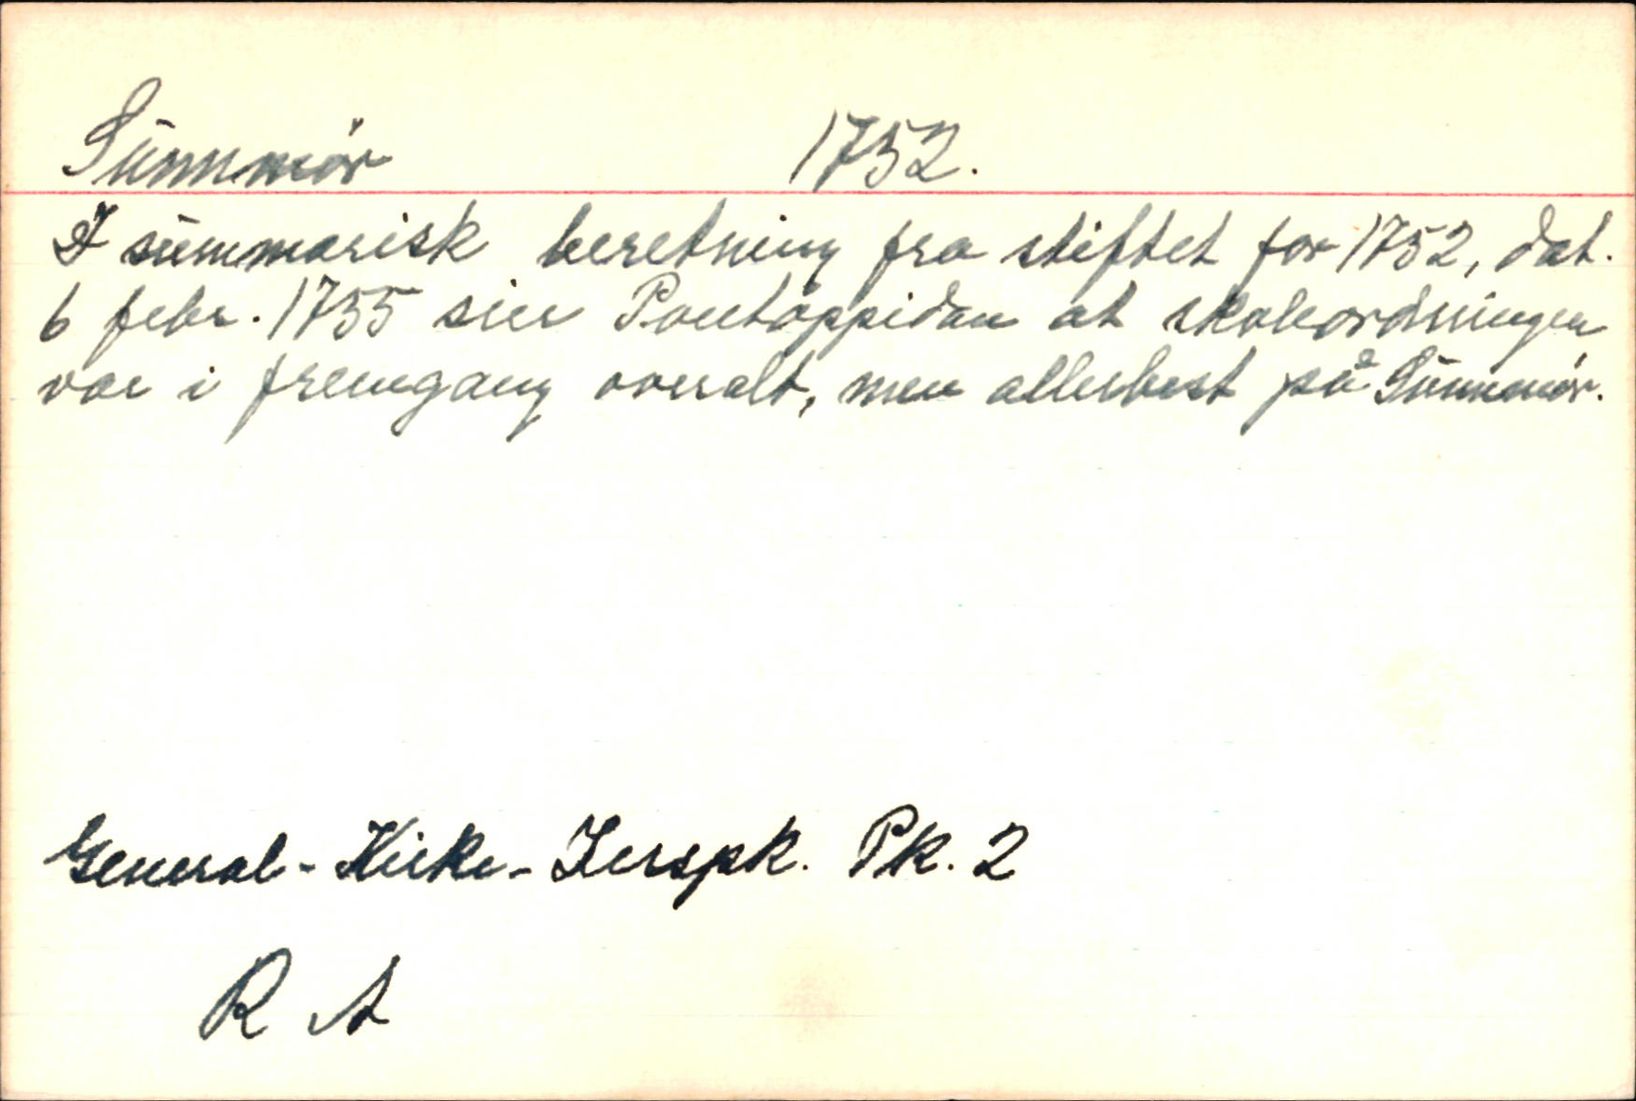 Sunnmör 1752.
I summarisk beretning fra stiftet for 1752, dat.
6 febr. 1755 sier Pontoppidan at skoleordningen
var i fremgang overalt, men allerbest på Sunnmör.
General-Kirke-Inspk. Pk. 2
R A